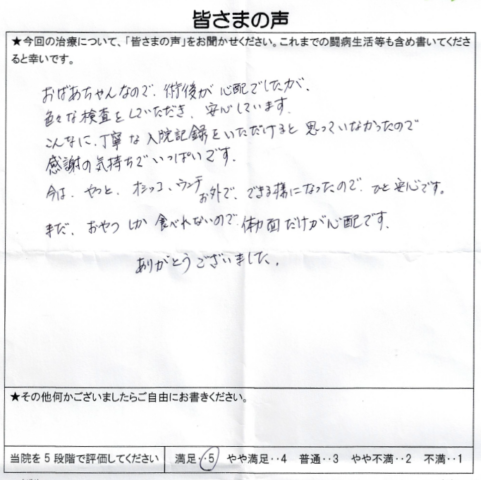 皆さまの声
★今回の治療について、「皆さまの声」をお聞かせください。これまでの闘病生活等も含め書いてくださ
ると幸いです。
おばあちゃんなので、術後が心配でしたが、
色々な検査をしていただき、安心しています。
こんなに、丁寧な入院記録をいただけると思っていなかったので
感謝の気持ちでいっぱいです。
今は、やっと、オシッコ、ウンチ お外で、できる様になったので、ひと安心です。
まだ、おやつしか食べれないので、体力面だけが心配です。
ありがとうございました。
★その他何かございましたらご自由にお書きください。
当院を5段階で評価してください 満足‥5 やや満足‥4 普通‥3 やや不満‥2 不満‥1